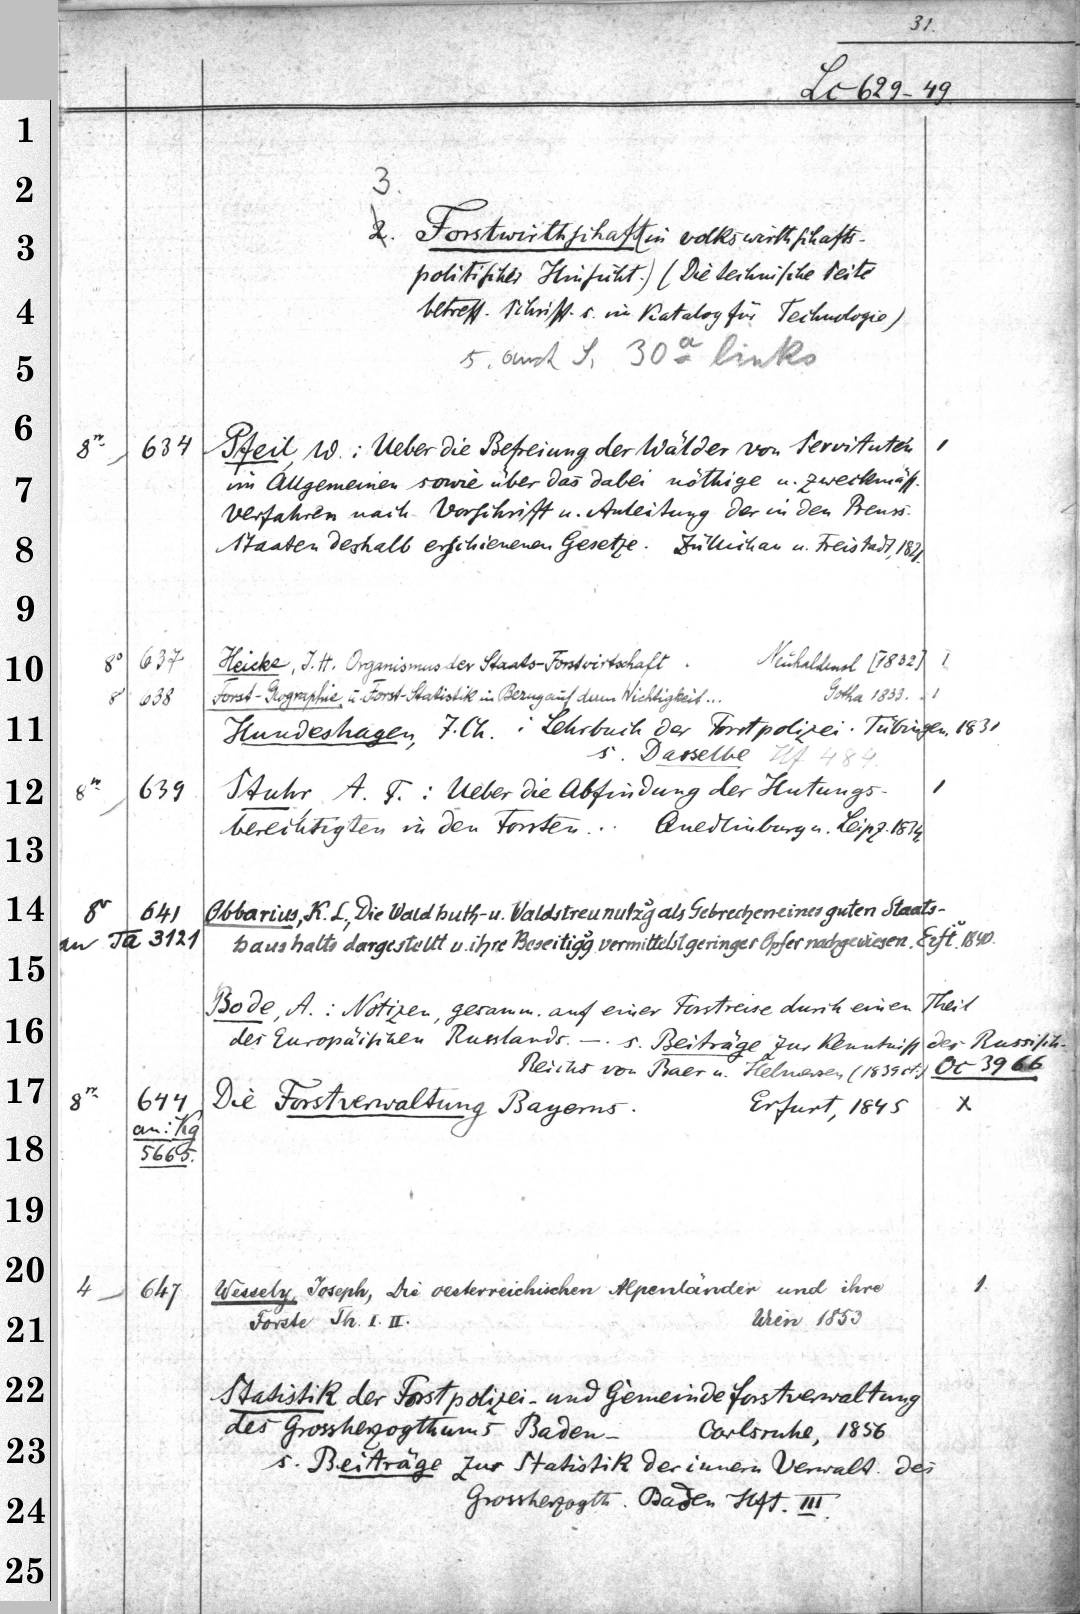 31.
Lc 629-49
1
2
3
4
5
6
7
8
9
10
11
12
13
14
15
16
17
18
19
20
21
22
23
24
25
3.
2. Forstwirthschaft (in volkswirthschafts-
politischer Hinsicht.) (Die technische Seite
betreff. Schrift. s. im Katalog für Technologie)
s. auch S. 30a links
8º 634 Pfeil, W. : Ueber die Befreiung der Wälder von Servituten 1
im Allgemeinen sowie über das dabei nöthige u. zweckmäss.
Verfahren nach Vorschrift u. Anleitung der in den Preuss.
Staaten deshalb erschienenen Gesetze. Züllichau u. Freistadt, 1821.
8º 637 Heicke, J. H. Organismus der Staats-Forstwirtschaft . Neuhaldensl [1832] 1
8º 638 Forst-Geographie u. Forst-Statistik in Bezug auf deren Wichtigkeit... Gotha 1833. 1
Hundeshagen, J. Ch. : Lehrbuch der Forstpolizei. Tübingen, 1831
s. Dasselbe Hf 484
8º 639 Stuhr A. F. : Ueber die Abfindung der Hutungs- 1
berechtigten in den Forsten... Quedlinburg u. Leipz. 1834
8º 641 Obbarius, K. L., Die Waldhuth- u. Waldstreunutzg als Gebrechen eines guten Staats-
an Ta 3121 haushalts dargestellt u. ihre Beseitigg vermittelst geringer Opfer nachgewiesen. Erft. 1840.
Bode, A. : Notizen, gesamm. auf einer Forstreise durch einen Theil
des Europäischen Russlands. — . s. Beiträge zur Kenntniss des Russisch-
Reichs von Baer u. Helmersen (1839 ff.) Oc 3966
8º 644 Die Forstverwaltung Bayerns. Erfurt, 1845 X
an: Kg
5665.
4 647 Wessely, Joseph, Die oesterreichischen Alpenländer und ihre 1.
Forste Th. I. II. Wien 1853
Statistik der Forstpolizei- und Gemeindeforstverwaltung
des Grossherzogthums Baden- Carlsruhe, 1856
s. Beiträge zur Statistik der innern Verwalt. des
Grossherzogth. Baden Hft. III.